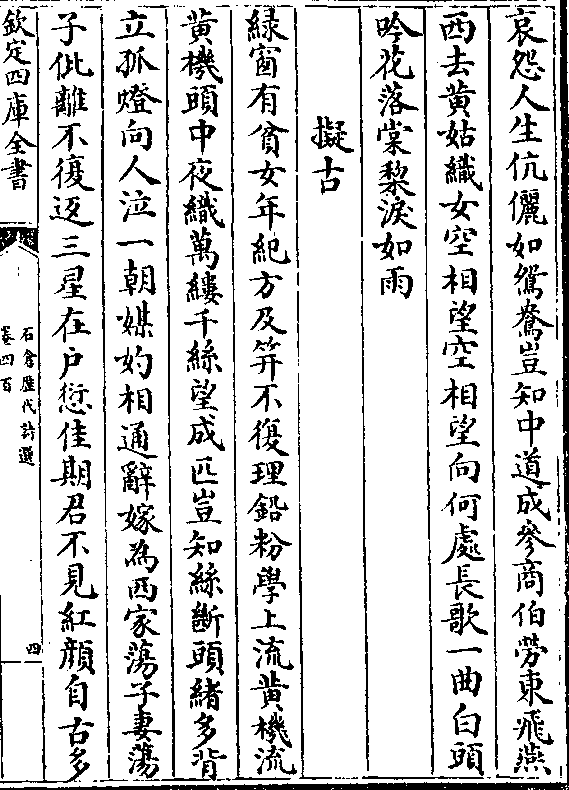 哀怨人生伉儷如鴛鴦豈知中道成參商伯勞東飛燕
西去黃姑織女空相望空相望向何處長歌一曲白頭
吟花落棠黎淚如雨
擬古
緑窗有貧女年紀方及笄不復理鉛粉學上流黃機流
黃機頭中夜織萬縷千絲望成匹豈知絲斷頭緒多背
立孤燈向人泣一朝媒妁相通辭嫁為西家蕩子妻蕩
子仳離不復返三星在户愆佳期君不見紅顔自古多
欽定四庫全書
石倉歷代詩選
卷四百
四